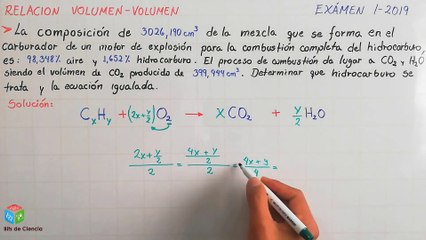 RELACION VOLUMEN-VOLUMEN EXÁMEN 1-2019
➤ La composición de 3026,190 cm³ de la mezcla que se forma en el
carburador de un motor de explosión para la combustión completa del hidrocarburo,
es: 98,348% aire y 1,652% hidrocarburo. El proceso de ambustión da lugar a CO₂ y H₂O
siendo el volúmen de CO₂ producida de 399,999 cm³. Determinar que hidrocarburo se
trata y la ecuación igualada.
Solución:
CxHy + (2x+y/2)/2 O₂ → XCO₂ + y/2 H₂O
(2x+y/2)/2 = ((4x+y)/2)/2 = (4x+y)/4 =
Bits de Ciencia